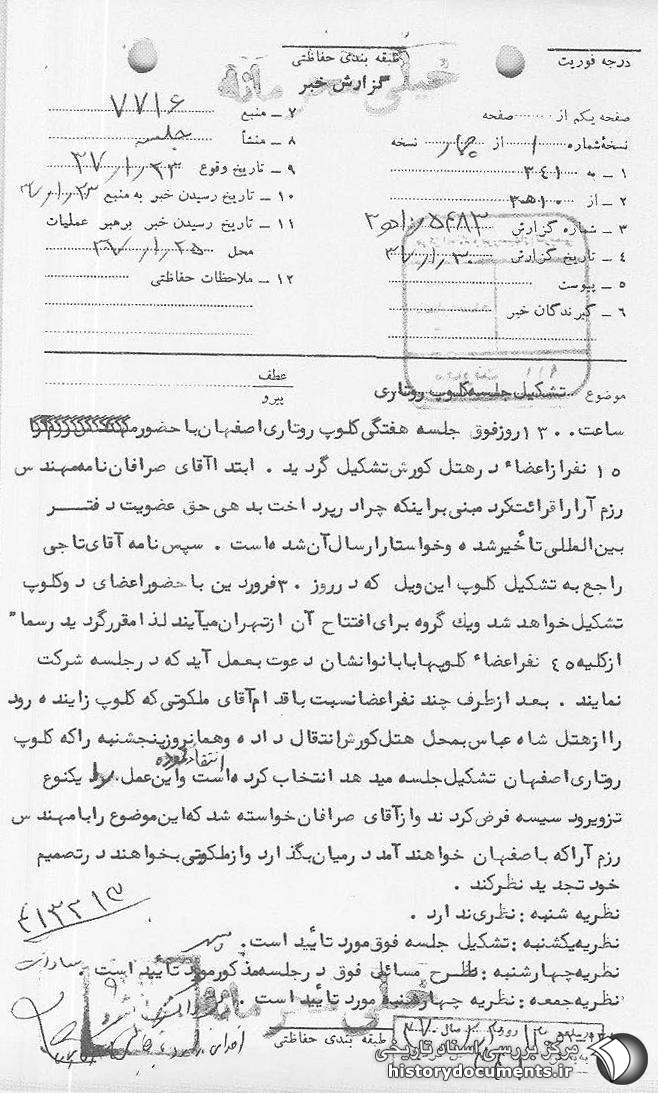 درجه فوریت
طبقه بندی حفاظتی
خیلی محرمانه
گزارش خبر
صفحه یکم از ........ صفحه
نسخه شماره ۱ از چهار نسخه
۱ ـ به ۳۴۱
۲ ـ از ۱۰ه۳
۳ ـ شماره گزارش
۴ ـ تاریخ گزارش
۵ ـ پیوست
۶ ـ گیرندگان خبر
۷ ـ منبع ۷۷۱۶
۸ ـ منشأ جلسه
۹ ـ تاریخ وقوع ۳۷/۱/۲۳
۱۰ ـ تاریخ رسیدن خبر به منبع
۱۱ ـ تاریخ رسیدن خبر برهبر عملیات
محل ۳۷/۱/۲۵
۱۲ ـ ملاحظات حفاظتی
عطف
پیرو
موضوع تشکیل جلسه کلوپ روتاری
ساعت ۱۳۰۰ روز فوق جلسه هفتگی کلوپ روتاری اصفهان با حضور
۱۵ نفر از اعضاء در هتل کورش تشکیل گردید . ابتدا آقای صرافان نامه مهندس
رزم آرا را قرائت کرد مبنی بر اینکه چرا در پرداخت بدهی حق عضویت دفتر
بین المللی تأخیر شده و خواستار ارسال آن شده است . سپس نامه آقای تاجی
راجع به تشکیل کلوپ این ویل که در روز ۳۰ فروردین با حضور اعضای دو کلوپ
تشکیل خواهد شد ویک گروه برای افتتاح آن از تهران میآیند لذا مقرر گردید رسما"
از کلیه ۴۵ نفر اعضاء کلوپها با بانوانشان دعوت بعمل آید که در جلسه شرکت
نمایند . بعد از طرف چند نفر اعضا نسبت باقدام آقای ملکوتی که کلوپ زاینده رود
را از هتل شاه عباس بمحل هتل کورش انتقال داده و همانروز پنجشنبه را که کلوپ
روتاری اصفهان تشکیل جلسه میدهد انتخاب کرده است انتقاد نموده و این عمل را یکنوع
تزویر و دسیسه فرض کردند و از آقای صرافان خواسته شد که این موضوع را با مهندس
رزم آرا که باصفهان خواهند آمد در میان بگذارد و از ملکوتی بخواهند در تصمیم
خود تجدید نظر کند .
نظریه شنبه : نظری ندارد .
نظریه یکشنبه : تشکیل جلسه فوق مورد تأیید است .
نظریه چهارشنبه : طرح مسائل فوق در جلسه مذکور مورد تأیید است .
نظریه جمعه : نظریه چهارشنبه مورد تأیید است .
خیلی محرمانه
طبقه بندی حفاظتی
مرکز بررسی اسناد تاریخی
historydocuments.ir